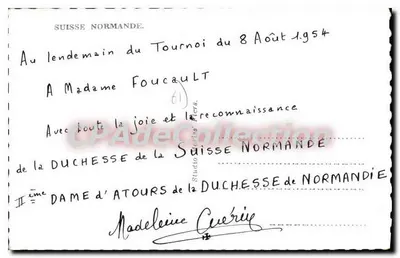 SUISSE NORMANDE.
Au lendemain du Tournoi du 8 Août 1954
A Madame FOUCAULT
Avec toute la joie et la reconnaissance
de la DUCHESSE de la SUISSE NORMANDE
IIème DAME d'ATOURS de la DUCHESSE de NORMANDIE
Madeleine Guérin
CPADeCollection